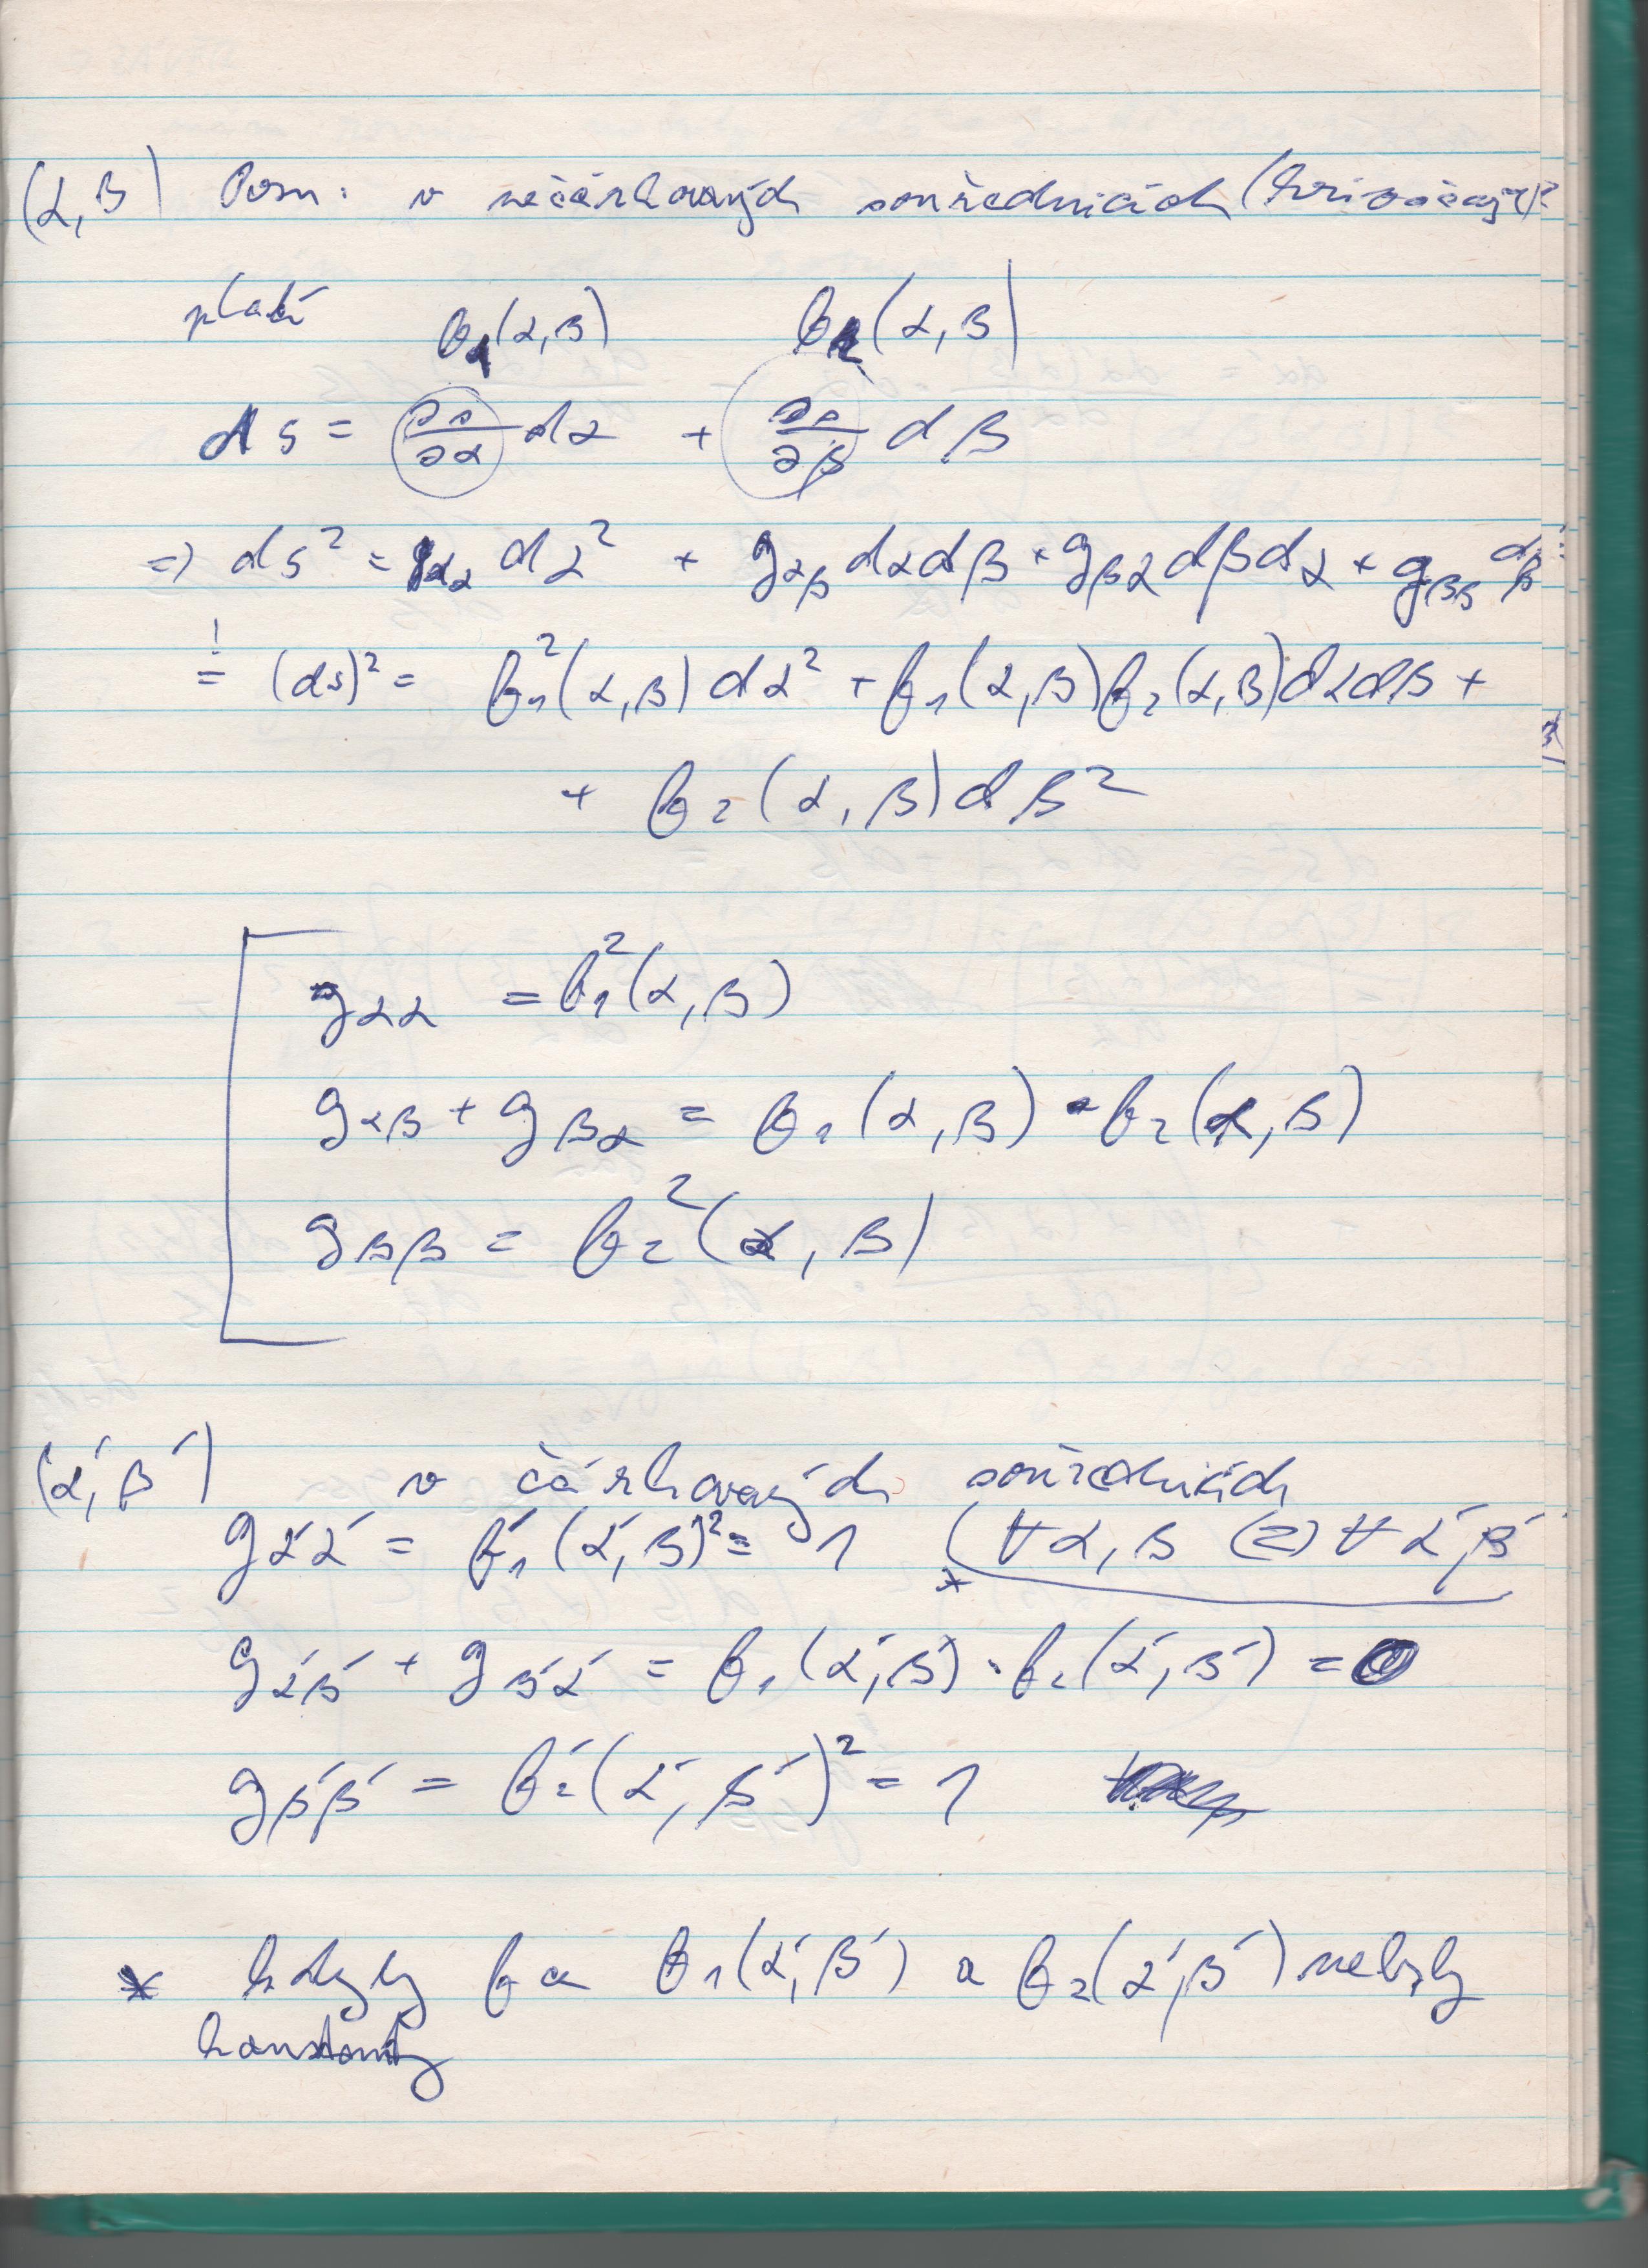 (α,β) Pozn: v nečárkovaných souřadnicích (
platí f₁(α,β) f₂(α,β)
ds = ∂s/∂α dα + ∂s/∂β dβ
=> ds² = g_αα dα² + g_αβ dαdβ + g_βα dβdα + g_ββ dβ
! = (ds)² = f₁²(α,β)dα² + f₁(α,β)f₂(α,β)dαdβ +
+ f₂(α,β)dβ²
g_αα = f₁²(α,β)
g_αβ + g_βα = f₁(α,β)·f₂(α,β)
g_ββ = f₂²(α,β)
(α´,β´) v čárkovaných souřadnicích
g_α´α´ = f´₁(α´,β)² = 1 (∀α,β (=) ∀α´,β´
*
g_α´β´ + g_β´α´ = f₁(α´,β´)·f₂(α´,β´) = 0
g_β´β´ = f₂´(α´,β´)² = 1
* kdyby f₁(α´,β´) a f₂(α´,β´) nebyly
konstanty